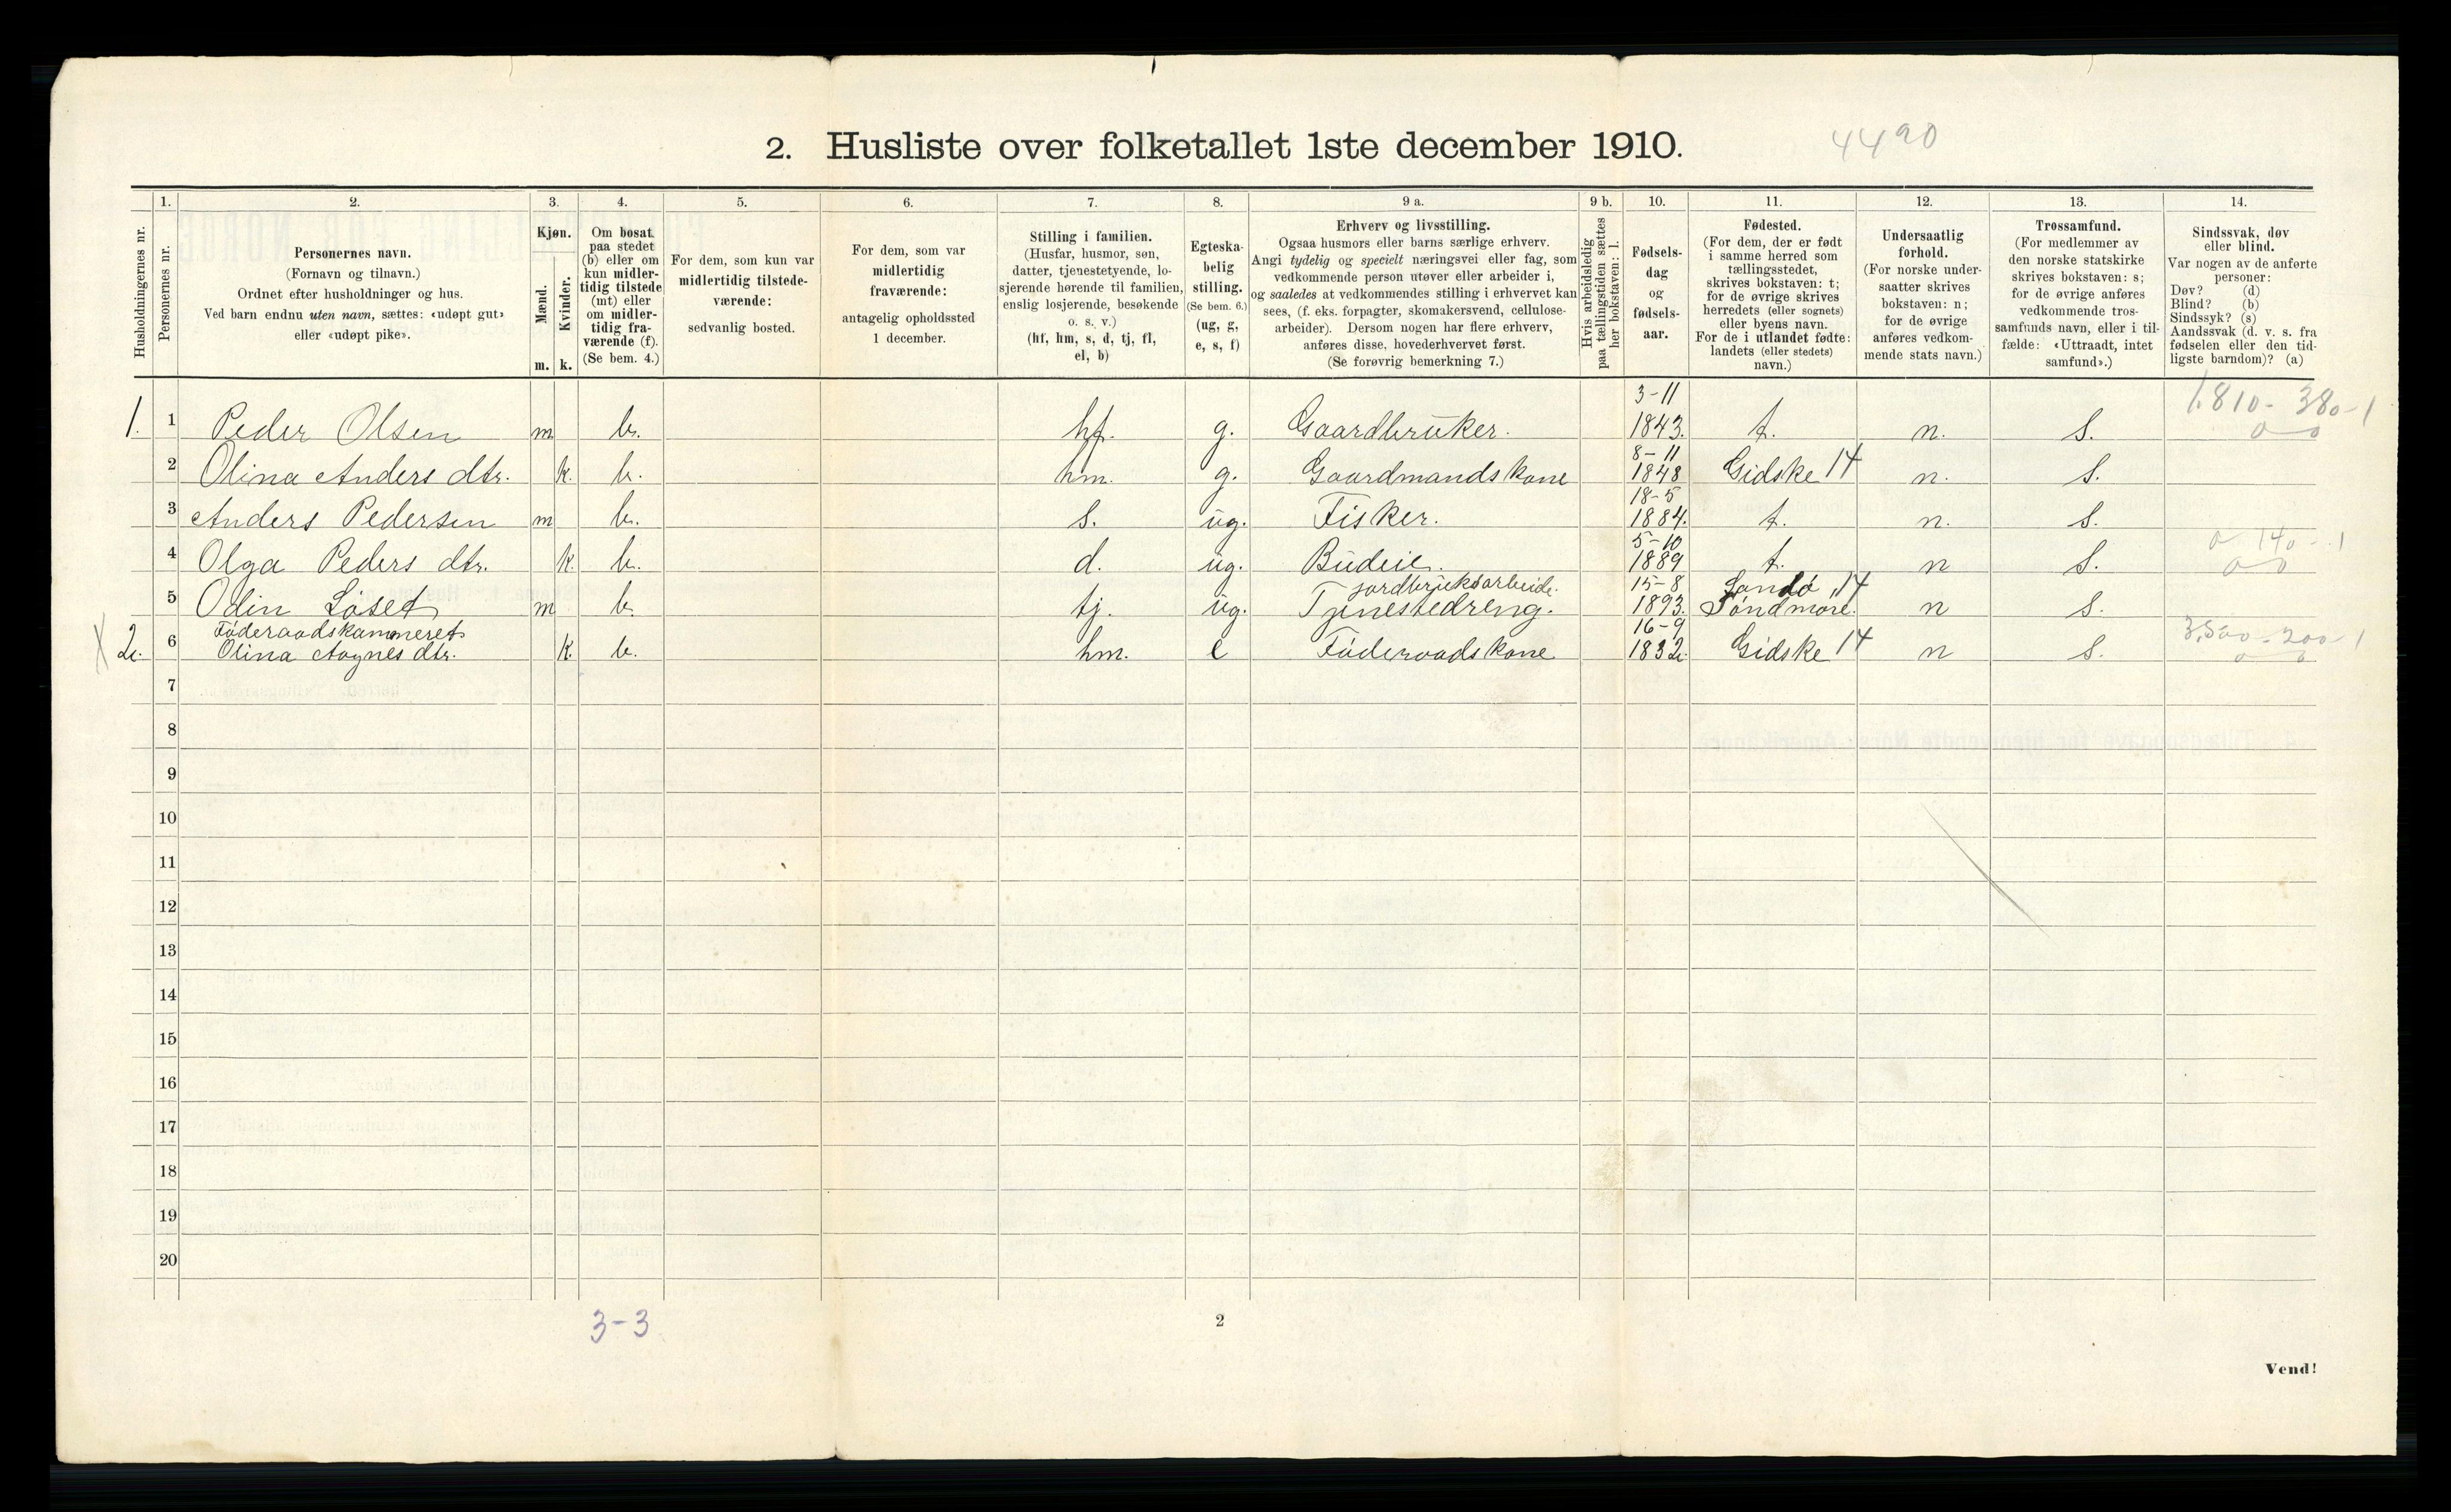 2. Husliste over folketallet 1ste december 1910.
4490
Husholdningernes nr.
1.
Personernes nr.
2.
Personernes navn.
(Fornavn og tilnavn.)
Ordnet efter husholdninger og hus.
Ved barn endnu uten navn, sættes: «udøpt gut»
eller «udøpt pike».
3.
Kjøn.
Mænd.
Kvinder.
m. k.
4.
Om bosat
paa stedet
(b) eller om
kun midler-
tidig tilstede
(mt) eller
om midler-
tidig fra-
værende (f).
(Se bem. 4.)
5.
For dem, som kun var
midlertidig tilstede-
værende:
sedvanlig bosted.
6.
For dem, som var
midlertidig
fraværende:
antagelig opholdssted
1 december.
7.
Stilling i familien.
(Husfar, husmor, søn,
datter, tjenestetyende, lo-
sjerende hørende til familien,
enslig losjerende, besøkende
o. s. v.)
(hf, hm, s, d, tj, fl,
el, b)
8.
Egteska-
belig
stilling.
(Se bem. 6.)
(ug, g,
e, s, f)
9 a.
Erhverv og livsstilling.
Ogsaa husmors eller barns særlige erhverv.
Angi tydelig og specielt næringsvei eller fag, som
vedkommende person utøver eller arbeider i,
og saaledes at vedkommendes stilling i erhvervet kan
sees, (f. eks. forpagter, skomakersvend, cellulose-
arbeider). Dersom nogen har flere erhverv,
anføres disse, hovederhvervet først.
(Se forøvrig bemerkning 7.)
9 b.
Hvis arbeidsledig
paa tællingstiden sættes
her bokstaven: l.
10.
Fødsels-
dag
og
fødsels-
aar.
11.
Fødested.
(For dem, der er født
i samme herred som
tællingsstedet,
skrives bokstaven: t;
for de øvrige skrives
herredets (eller sognets)
eller byens navn.
For de i utlandet fødte:
landets (eller stedets)
navn.)
12.
Undersaatlig
forhold.
(For norske under-
saatter skrives
bokstaven: n;
for de øvrige
anføres vedkom-
mende stats navn.)
13.
Trossamfund.
(For medlemmer av
den norske statskirke
skrives bokstaven: s;
for de øvrige anføres
vedkommende tros-
samfunds navn, eller i til-
fælde: «Uttraadt, intet
samfund».)
14.
Sindssvak, døv
eller blind.
Var nogen av de anførte
personer:
Døv? (d)
Blind? (b)
Sindssyk? (s)
Aandssvak (d. v. s. fra
fødselen eller den tid-
ligste barndom)? (a)
1. 1 Peder Olsen m b. hf. g. Gaardbruker. 3-11 1843. t. n. s. 1.810-380-1 0 0
2 Olina Anders dtr. k. b. hm. g. Gaardmandskone 8-11 1848 Gidske 14 n. s.
3 Anders Pedersen m b. s. ug. Fisker. 18-5 1884. t. n. s.
4 Olga Peders dtr. k. b. d. ug. Budeie. 5-10 1889 t. n s. 0 140-1 0 0
jordbruksarbeide.
5 Odin Löset m b. tj. ug. Tjenestedreng. 15-8 1893. Sandö 14 Söndmöre. n s.
Föderaadskammeret
X 2. 6 Olina Aagnes dtr. k. b. hm. e Föderaadskone 16-9 1832. Gidske 14 n s. 3,500-200-1 0 0
7
8
9
10
11
12
13
14
15
16
17
18
19
20
3-3
2
Vend!